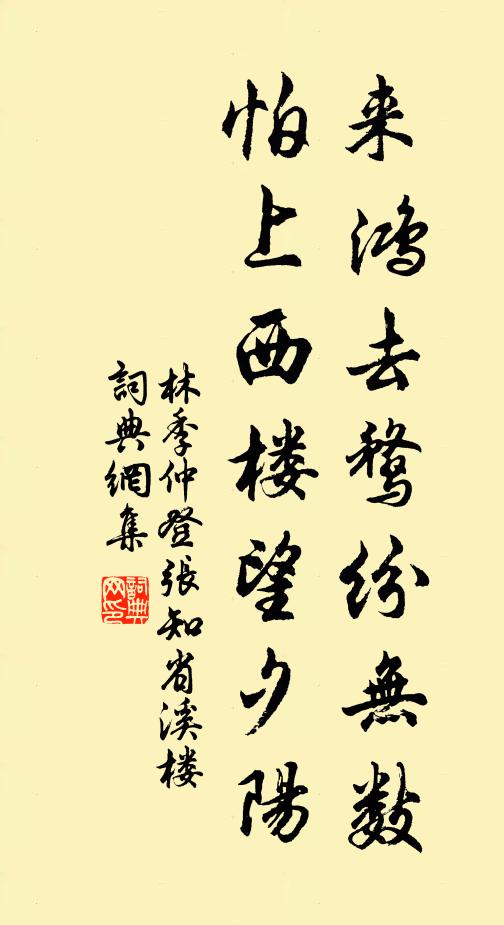 来鸿去鹜纷無数
怕上西楼望夕陽
林季仲登張知省溪楼
詞典網集
詞典网印